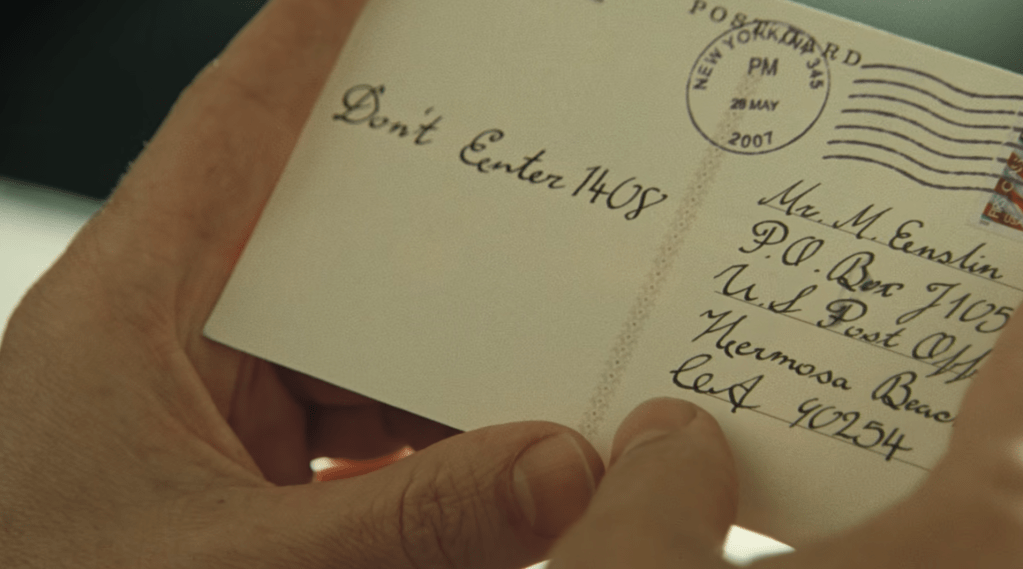 POSTCARD
NEW YORK NY 345
PM
28 MAY
2007
Don't Enter 1408
Mr. M. Eenslin
P.O. Box J105
U.S Post Off
Hermosa Beac
CA 90254